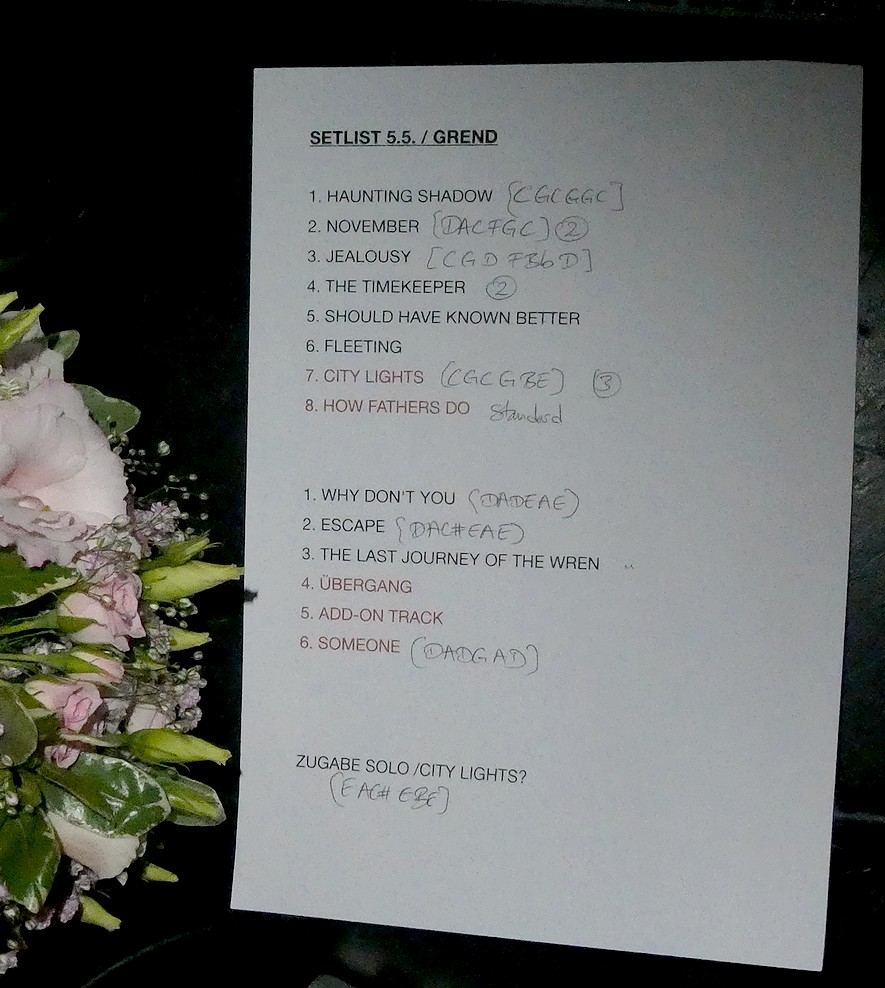 SETLIST 5.5. / GREND
1. HAUNTING SHADOW [CGCGGC]
2. NOVEMBER [DACFGC] 2
3. JEALOUSY [CGDFBbD]
4. THE TIMEKEEPER 2
5. SHOULD HAVE KNOWN BETTER
6. FLEETING
7. CITY LIGHTS (CGCGBE) 3
8. HOW FATHERS DO Standard
1. WHY DON'T YOU (DADEAE)
2. ESCAPE (DAC#EAE)
3. THE LAST JOURNEY OF THE WREN
4. ÜBERGANG
5. ADD-ON TRACK
6. SOMEONE (DADGAD)
ZUGABE SOLO /CITY LIGHTS?
(EAC#EBE)